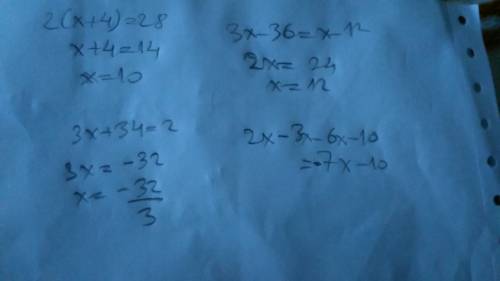 2(x+4)=28
x+4=14
x=10
3x-36=x-12
2x= 24
x=12
3x+34=2
3x= -32
x= -32/3
2x-3x-6x-10
=-7x-10